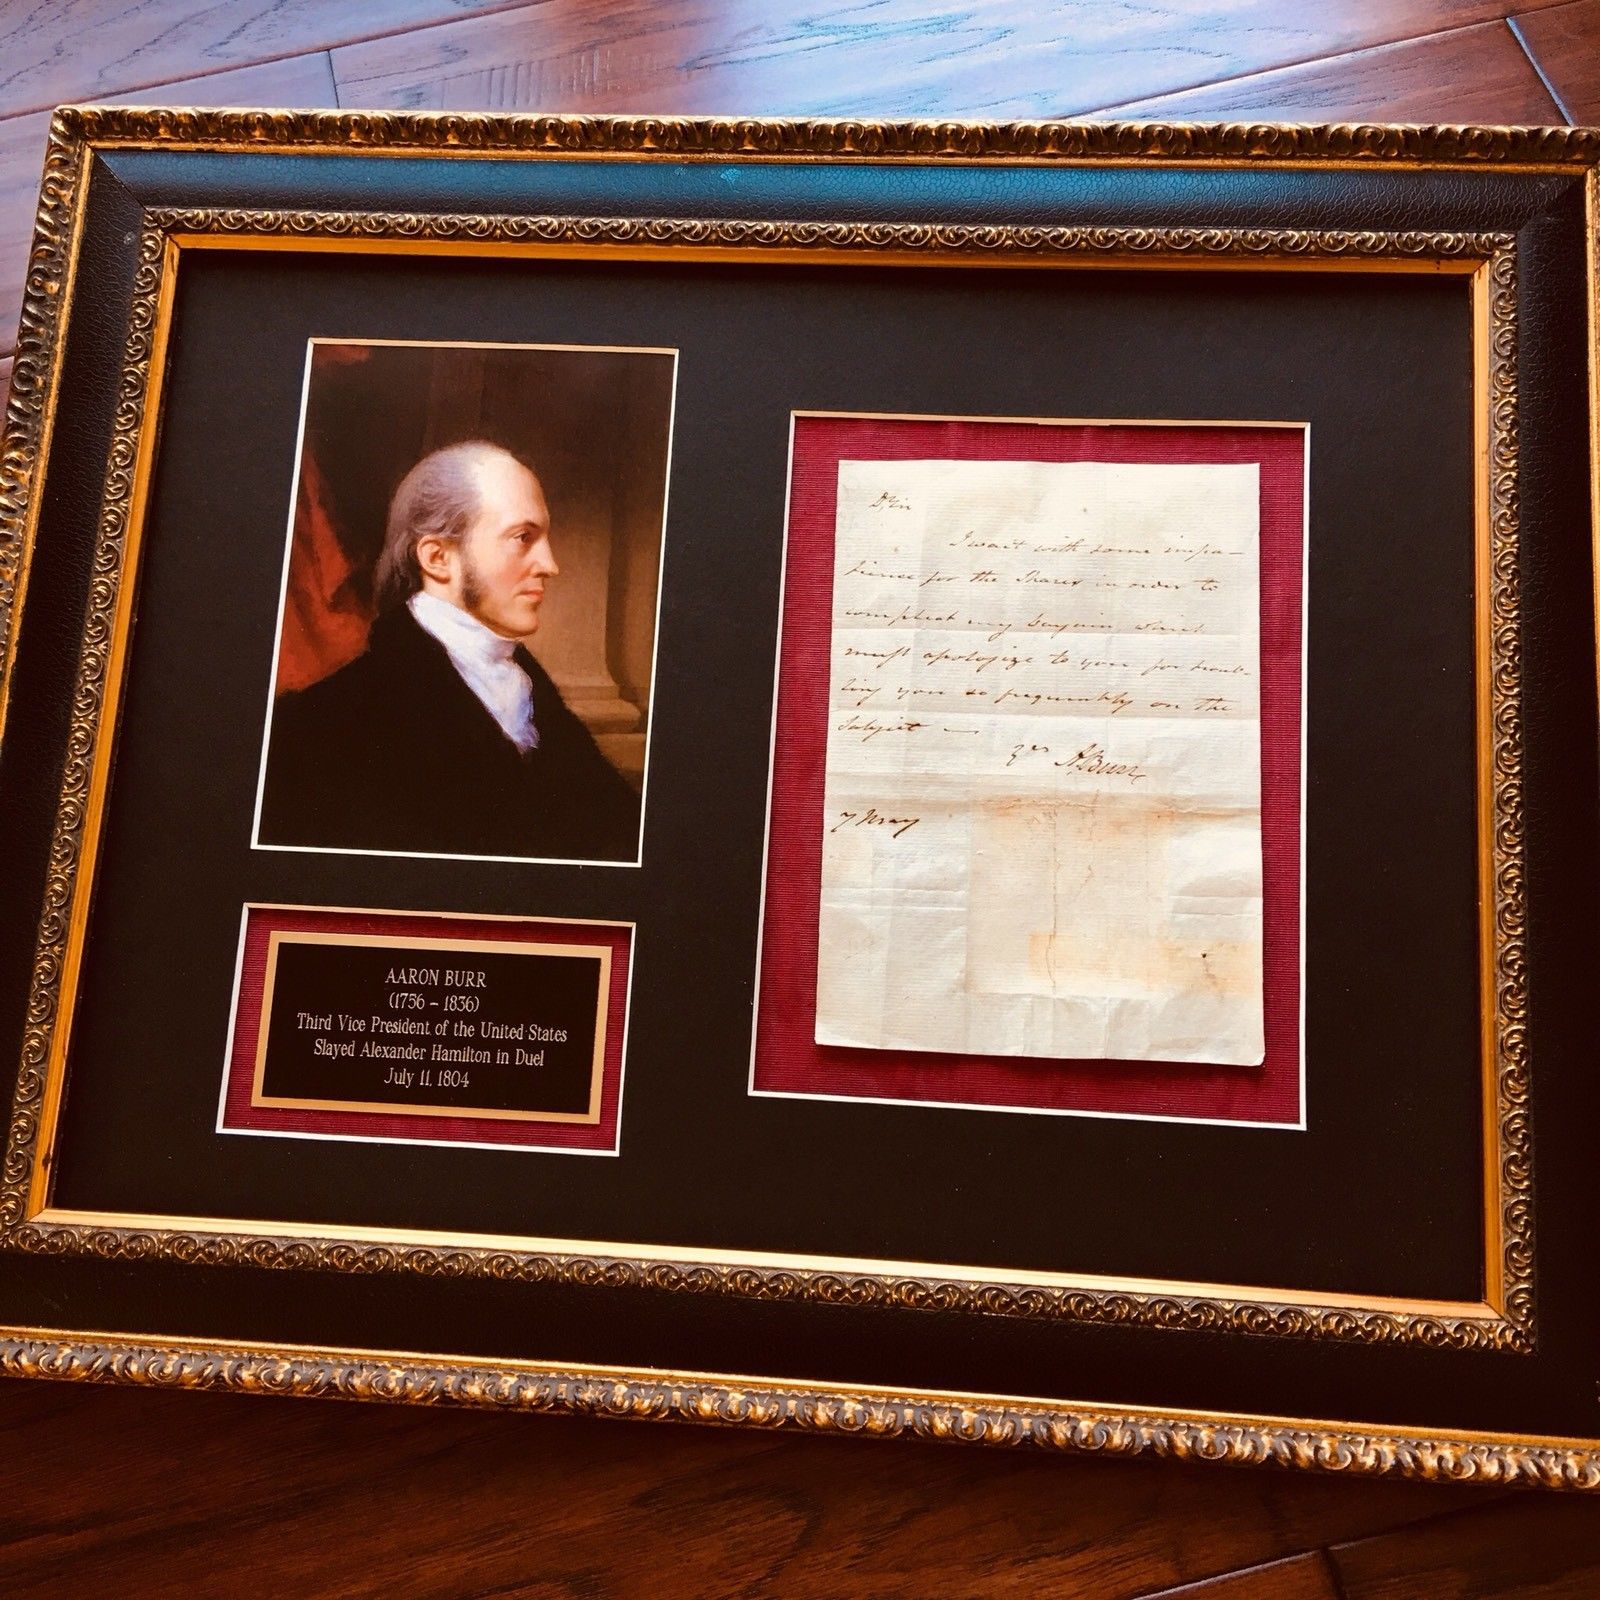 D Sir
I wait with some impa-
tience for the Shares in order to
compleat my bargain which
must apologize to you for troub-
ling you so frequently on the
Subject —
Yrs A. Burr
7 May
AARON BURR
(1756 - 1836)
Third Vice President of the United States
Slayed Alexander Hamilton in Duel
July 11, 1804